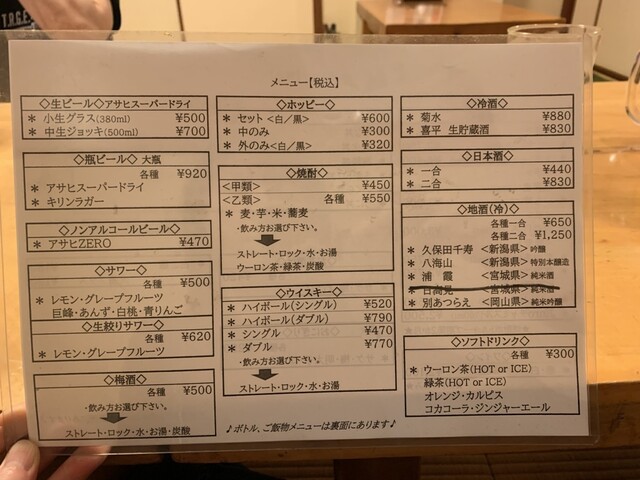 メニュー【税込】
◇生ビール◇アサヒスーパードライ
* 小生グラス(380ml) ¥500
* 中生ジョッキ(500ml) ¥700
◇瓶ビール◇ 大瓶
各種 ¥920
* アサヒスーパードライ
* キリンラガー
◇ノンアルコールビール◇
* アサヒZERO ¥470
◇サワー◇
各種 ¥500
* レモン・グレープフルーツ
巨峰・あんず・白桃・青りんご
◇生絞りサワー◇
各種 ¥620
* レモン・グレープフルーツ
◇梅酒◇
各種 ¥500
・飲み方お選び下さい。
ストレート・ロック・水・お湯・炭酸
◇ホッピー◇
* セット<白/黒> ¥600
* 中のみ ¥300
* 外のみ<白/黒> ¥320
◇焼酎◇
<甲類> ¥450
<乙類> 各種 ¥550
* 麦・芋・米・蕎麦
・飲み方お選び下さい。
ストレート・ロック・水・お湯
ウーロン茶・緑茶・炭酸
◇ウイスキー◇
* ハイボール(シングル) ¥520
* ハイボール(ダブル) ¥790
* シングル ¥470
* ダブル ¥770
・飲み方お選び下さい。
ストレート・ロック・水・お湯
◇冷酒◇
* 菊水 ¥880
* 喜平 生貯蔵酒 ¥830
◇日本酒◇
* 一合 ¥440
* 二合 ¥830
◇地酒(冷)◇
各種一合 ¥650
各種二合 ¥1,250
* 久保田千寿 <新潟県> 吟醸
* 八海山 <新潟県> 特別本醸造
* 浦 霞 <宮城県> 純米酒
* 日高見 <宮城県> 純米酒
* 別あつらえ <岡山県> 純米吟醸
◇ソフトドリンク◇
各種 ¥300
* ウーロン茶(HOT or ICE)
緑茶(HOT or ICE)
オレンジ・カルピス
コカコーラ・ジンジャーエール
♪ボトル、ご飯物メニューは裏面にあります♪